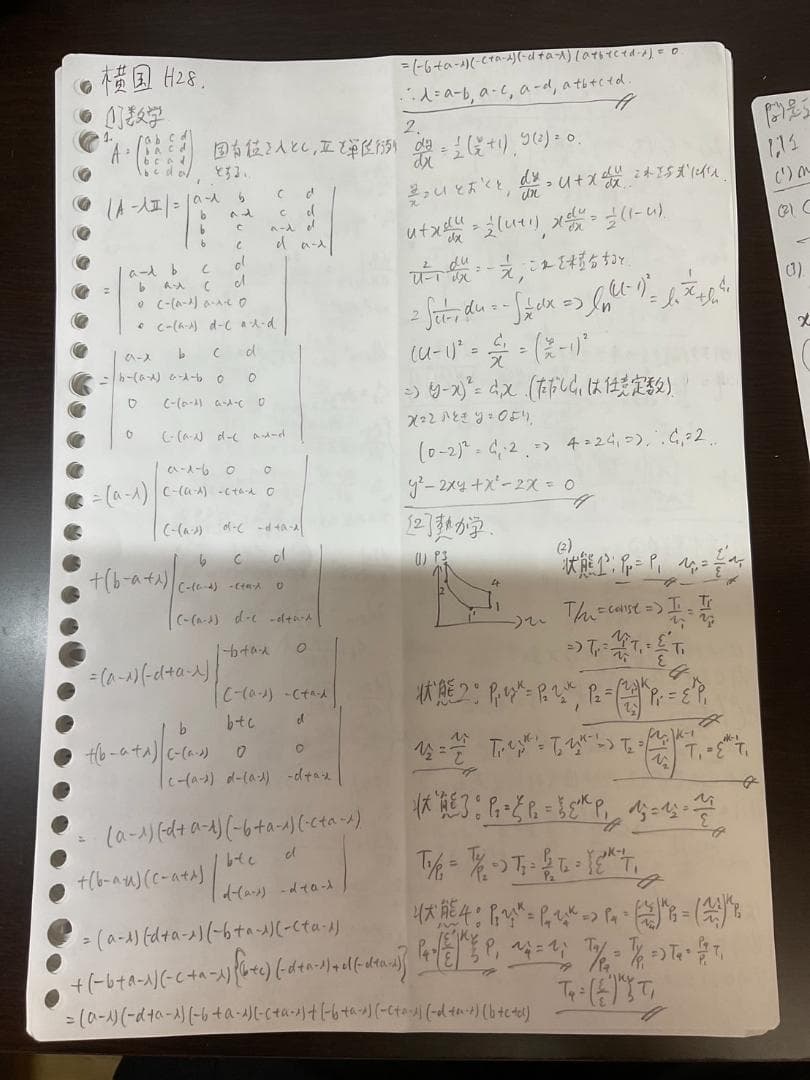 横国 H28.
[1]数学
1.
A = (a b c d / b a c d / b c a d / b c d a), 固有値をλとし, Iを単位行列
とする.
|A-λI| = |a-λ b c d / b a-λ c d / b c a-λ d / b c d a-λ|
= |a-λ b c d / b a-λ c d / 0 c-(a-λ) a-λ-c 0 / 0 c-(a-λ) d-c a-λ-d|
= |a-λ b c d / b-(a-λ) a-λ-b 0 0 / 0 c-(a-λ) a-λ-c 0 / 0 c-(a-λ) d-c a-λ-d|
= (a-λ) |a-λ-b 0 0 / c-(a-λ) -c+a-λ 0 / c-(a-λ) d-c -d+a-λ|
+(b-a+λ) |b c d / c-(a-λ) -c+a-λ 0 / c-(a-λ) d-c -d+a-λ|
= (a-λ)(-d+a-λ) |-b+a-λ 0 / c-(a-λ) -c+a-λ|
+(b-a+λ) |b b+c d / c-(a-λ) 0 0 / c-(a-λ) d-(a-λ) -d+a-λ|
= (a-λ)(-d+a-λ)(-b+a-λ)(-c+a-λ)
+(b-a+λ)(c-a+λ) |b+c d / d-(a-λ) -d+a-λ|
= (a-λ)(-d+a-λ)(-b+a-λ)(-c+a-λ)
+(-b+a-λ)(-c+a-λ){(b+c)(-d+a-λ)+d(-d+a-λ)}
= (a-λ)(-d+a-λ)(-b+a-λ)(-c+a-λ)+(-b+a-λ)(-c+a-λ)(-d+a-λ)(b+c+d)
= (-b+a-λ)(-c+a-λ)(-d+a-λ)(a+b+c+d-λ) = 0.
∴ λ = a-b, a-c, a-d, a+b+c+d.
2.
dy/dx = 1/2(y/x+1), y(2) = 0.
y/x = u とおくと, dy/dx = u + x du/dx. これを与式に代入
u + x du/dx = 1/2(u+1), x du/dx = 1/2(1-u).
2/(u-1) du/dx = -1/x, これを積分すると
2∫1/(u-1) du = -∫1/x dx ⇒ ln(u-1)² = ln 1/x + ln C₁
(u-1)² = C₁/x = (y/x-1)²
⇒ (y-x)² = C₁x. (ただしC₁は任意定数)
x=2のときy=0より,
(0-2)² = C₁·2. ⇒ 4 = 2C₁ ⇒ ∴ C₁ = 2.
y²-2xy+x²-2x = 0
[2]熱力学.
(1) P 3 2 4 1 1' v
(2)
状態1': P₁' = P₁ v₁' = ε'/ε v₁
T/v = const ⇒ T₁/v₁ = T₁'/v₁'
⇒ T₁' = v₁'/v₁ T₁ = ε'/ε T₁
状態2: P₁'v₁'^κ = P₂v₂^κ, P₂ = (v₁'/v₂)^κ P₁' = ε'^κ P₁
v₂ = v₁/ε T₁'v₁'^κ⁻¹ = T₂v₂^κ⁻¹ ⇒ T₂ = (v₁'/v₂)^κ⁻¹ T₁' = ε'^κ⁻¹ T₁
状態3: P₃ = ξP₂ = ξε'^κ P₁ v₃ = v₂ = v₁/ε
T₃/P₃ = T₂/P₂ ⇒ T₃ = P₃/P₂ T₂ = ξε'^κ⁻¹ T₁
状態4: P₃v₃^κ = P₄v₄^κ ⇒ P₄ = (v₃/v₄)^κ P₃ = (v₂/v₁)^κ P₃
P₄ = (ε'/ε)^κ ξ P₁ v₄ = v₁ T₄/P₄ = T₁/P₁ ⇒ T₄ = P₄/P₁ T₁
T₄ = (ε'/ε)^κ ξ T₁